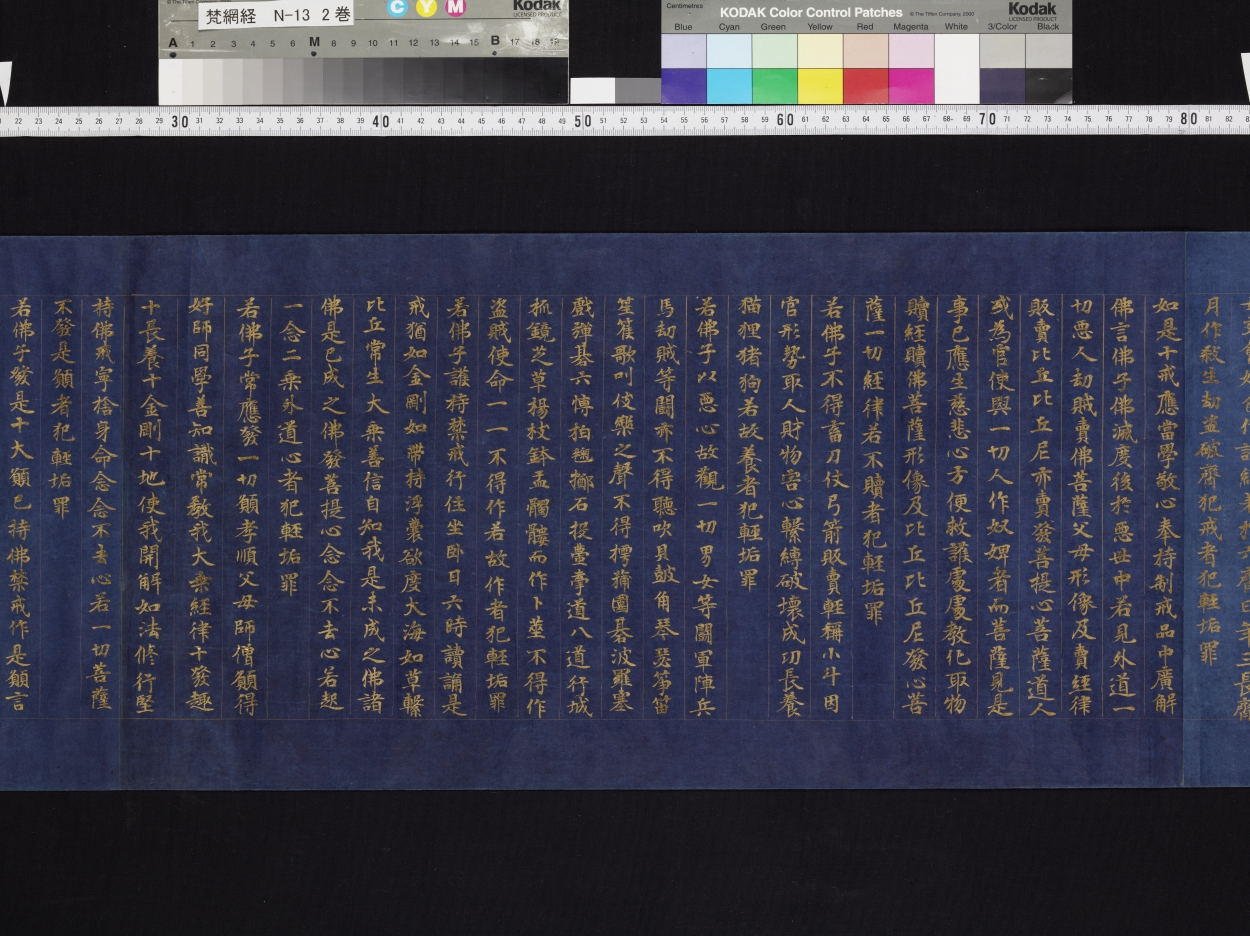 梵網経 N-13 2巻
C Y M
Kodak
LICENSED PRODUCT
A 1 2 3 4 5 6 M 8 9 10 11 12 13 14 15 B 17 18 19
Centimetres
KODAK Color Control Patches
© The Tiffen Company, 2000
Kodak
LICENSED PRODUCT
Blue Cyan Green Yellow Red Magenta White 3/Color Black
22 23 24 25 26 27 28 29 30 31 32 33 34 35 36 37 38 39 40 41 42 43 44 45 46 47 48 49 50 51 52 53 54 55 56 57 58 59 60 61 62 63 64 65 66 67 68 69 70 71 72 73 74 75 76 77 78 79 80 81 82
月作殺生劫盗破齋犯戒者犯輕垢罪
如是十戒應當學敬心奉持制戒品中廣解
佛言佛子佛滅度後於惡世中若見外道一
切惡人劫賊賣佛菩薩父母形像及賣經律
販賣比丘比丘尼亦賣發菩提心菩薩道人
或為官使與一切人作奴婢者而菩薩見是
事已應生慈悲心方便救護處處教化取物
贖經贖佛菩薩形像及比丘比丘尼發心菩
薩一切經律若不贖者犯輕垢罪
若佛子不得畜刀仗弓箭販賣輕稱小斗因
官形勢取人財物害心繫縛破壞成功長養
猫狸猪狗若故養者犯輕垢罪
若佛子以惡心故觀一切男女等鬪軍陣兵
馬劫賊等鬪亦不得聽吹貝皷角琴瑟箏笛
笙篌歌叫伎樂之聲不得摴蒱圍碁波羅塞
戲彈碁六愽拍毱擲石投壺亭道八道行城
抓鏡芝草楊枝鉢盂髑髏而作卜莁不得作
盗賊使命一一不得作若故作者犯輕垢罪
若佛子護持禁戒行住坐卧日六時讀誦是
戒猶如金剛如帶持浮囊欲度大海如草繫
比丘常生大乗善信自知我是未成之佛諸
佛是已成之佛發菩提心念念不去心若起
一念二乗外道心者犯輕垢罪
若佛子常應發一切願孝順父母師僧願得
好師同學善知識常教我大乗經律十發趣
十長養十金剛十地使我開解如法修行堅
持佛戒寧捨身命念念不去心若一切菩薩
不發是願者犯輕垢罪
若佛子發是十大願已持佛禁戒作是願言